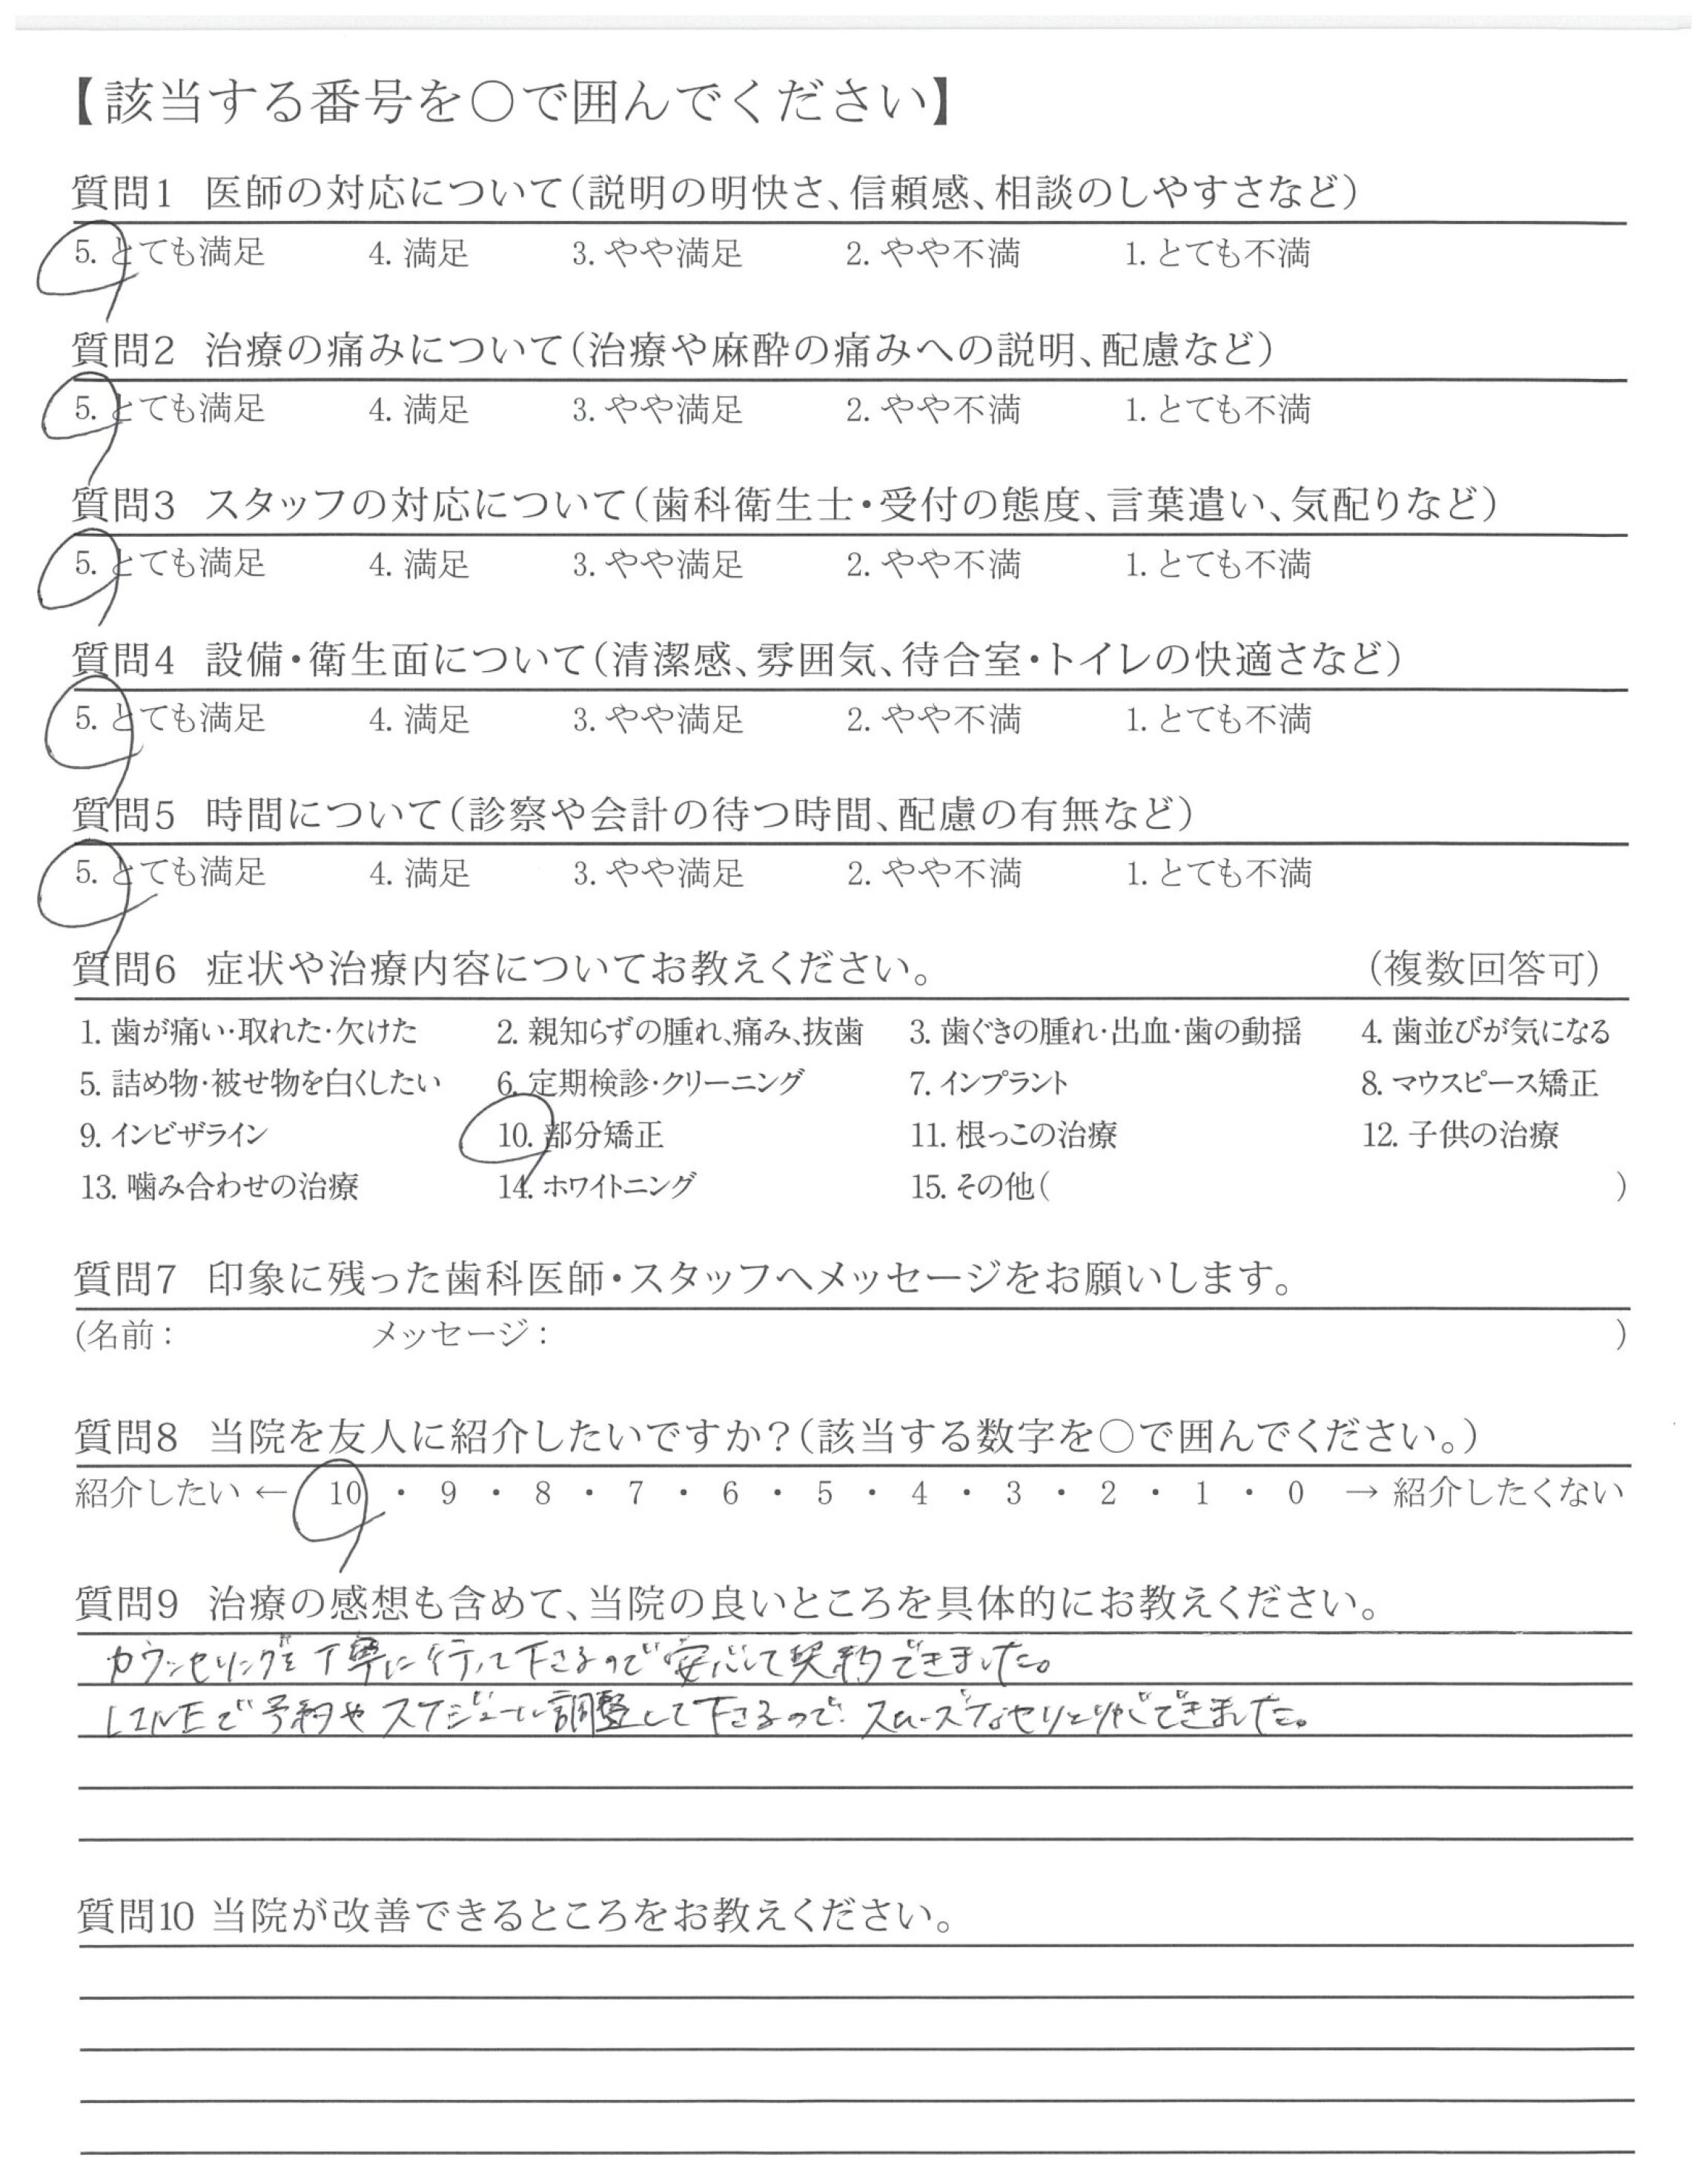 【該当する番号を〇で囲んでください】
質問1 医師の対応について(説明の明快さ、信頼感、相談のしやすさなど)
5. とても満足 4. 満足 3. やや満足 2. やや不満 1. とても不満
質問2 治療の痛みについて(治療や麻酔の痛みへの説明、配慮など)
5. とても満足 4. 満足 3. やや満足 2. やや不満 1. とても不満
質問3 スタッフの対応について(歯科衛生士・受付の態度、言葉遣い、気配りなど)
5. とても満足 4. 満足 3. やや満足 2. やや不満 1. とても不満
質問4 設備・衛生面について(清潔感、雰囲気、待合室・トイレの快適さなど)
5. とても満足 4. 満足 3. やや満足 2. やや不満 1. とても不満
質問5 時間について(診察や会計の待つ時間、配慮の有無など)
5. とても満足 4. 満足 3. やや満足 2. やや不満 1. とても不満
質問6 症状や治療内容についてお教えください。 (複数回答可)
1. 歯が痛い・取れた・欠けた 2. 親知らずの腫れ、痛み、抜歯 3. 歯ぐきの腫れ・出血・歯の動揺 4. 歯並びが気になる
5. 詰め物・被せ物を白くしたい 6. 定期検診・クリーニング 7. インプラント 8. マウスピース矯正
9. インビザライン 10. 部分矯正 11. 根っこの治療 12. 子供の治療
13. 噛み合わせの治療 14. ホワイトニング 15. その他( )
質問7 印象に残った歯科医師・スタッフへメッセージをお願いします。
(名前: メッセージ: )
質問8 当院を友人に紹介したいですか?(該当する数字を〇で囲んでください。)
紹介したい ← 10 ・ 9 ・ 8 ・ 7 ・ 6 ・ 5 ・ 4 ・ 3 ・ 2 ・ 1 ・ 0 → 紹介したくない
質問9 治療の感想も含めて、当院の良いところを具体的にお教えください。
カウンセリングを丁寧に行って下さるので安心して契約できました。
LINEで予約やスケジュール調整して下さるので、スムーズなやりとりができました。
質問10 当院が改善できるところをお教えください。